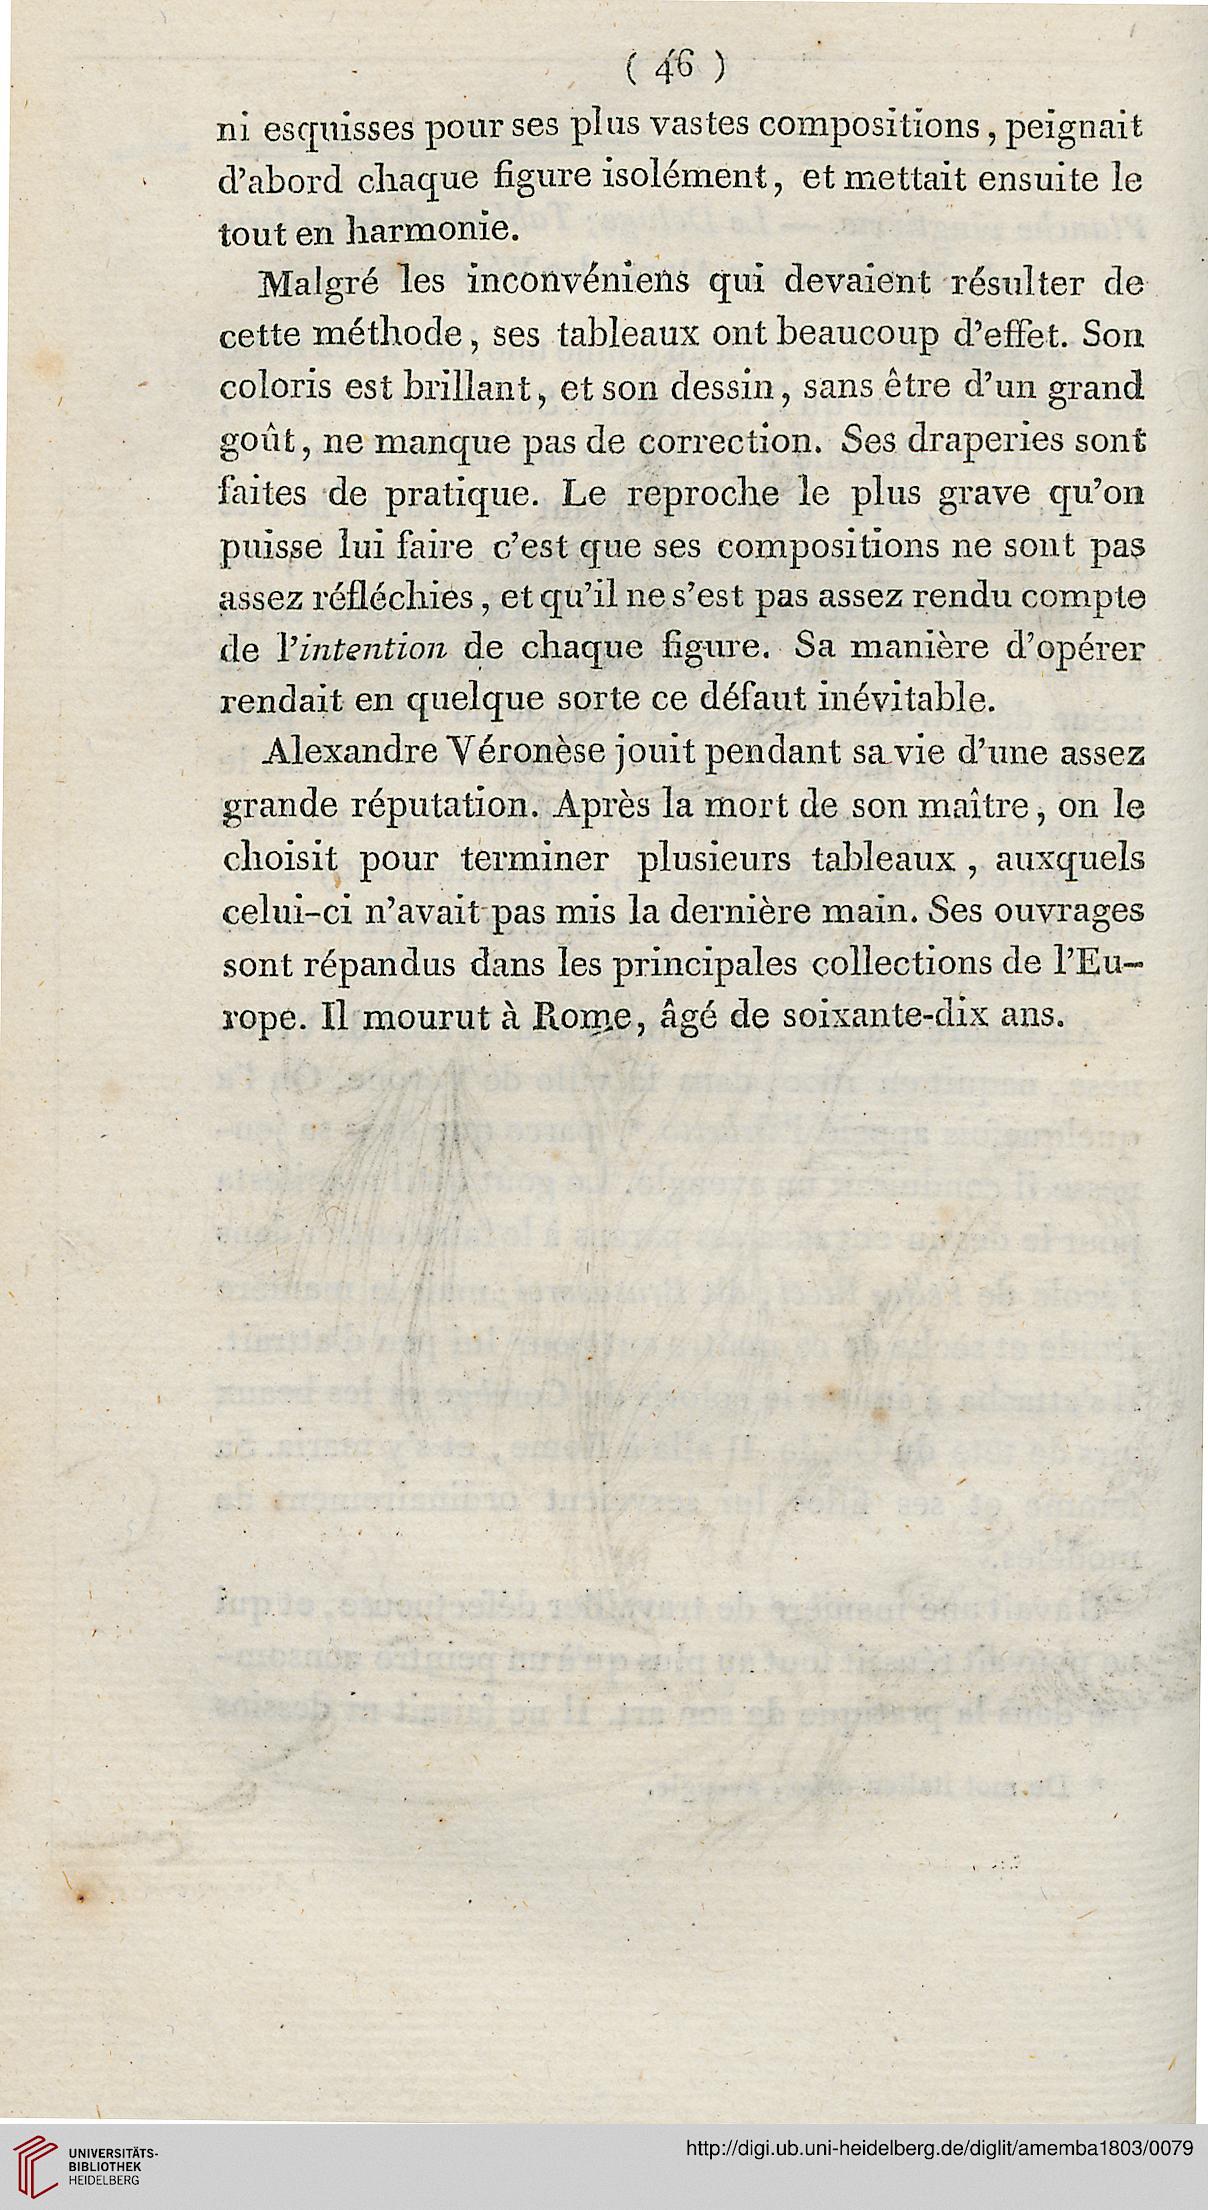 ( 46 )
ni esquisses pour ses plus vastes compositions, peignait
d'abord chaque figure isolément, et mettait ensuite le
tout en harmonie.
Malgré les inconvéniens qui devaient résulter de
cette méthode, ses tableaux ont beaucoup d'effet. Son
coloris est brillant, et son dessin, sans être d'un grand
goût, ne manque pas de correction. Ses draperies sont
faites de pratique. Le reproche le plus grave qu'on
puisse lui faire c'est que ses compositions ne sont pas
assez réfléchies, et qu'il ne s'est pas assez rendu compte
de l'intention de chaque figure. Sa manière d'opérer
rendait en quelque sorte ce défaut inévitable.
Alexandre Véronèse jouit pendant sa vie d'une assez
grande réputation. Après la mort de son maître, on le
choisit pour terminer plusieurs tableaux, auxquels
celui-ci n'avait pas mis la dernière main. Ses ouvrages
sont répandus dans les principales collections de l'Eu-
rope. Il mourut à Rome, âgé de soixante-dix ans.
UNIVERSITÄTS-
BIBLIOTHEK
HEIDELBERG
http://digi.ub.uni-heidelberg.de/diglit/amemba1803/0079